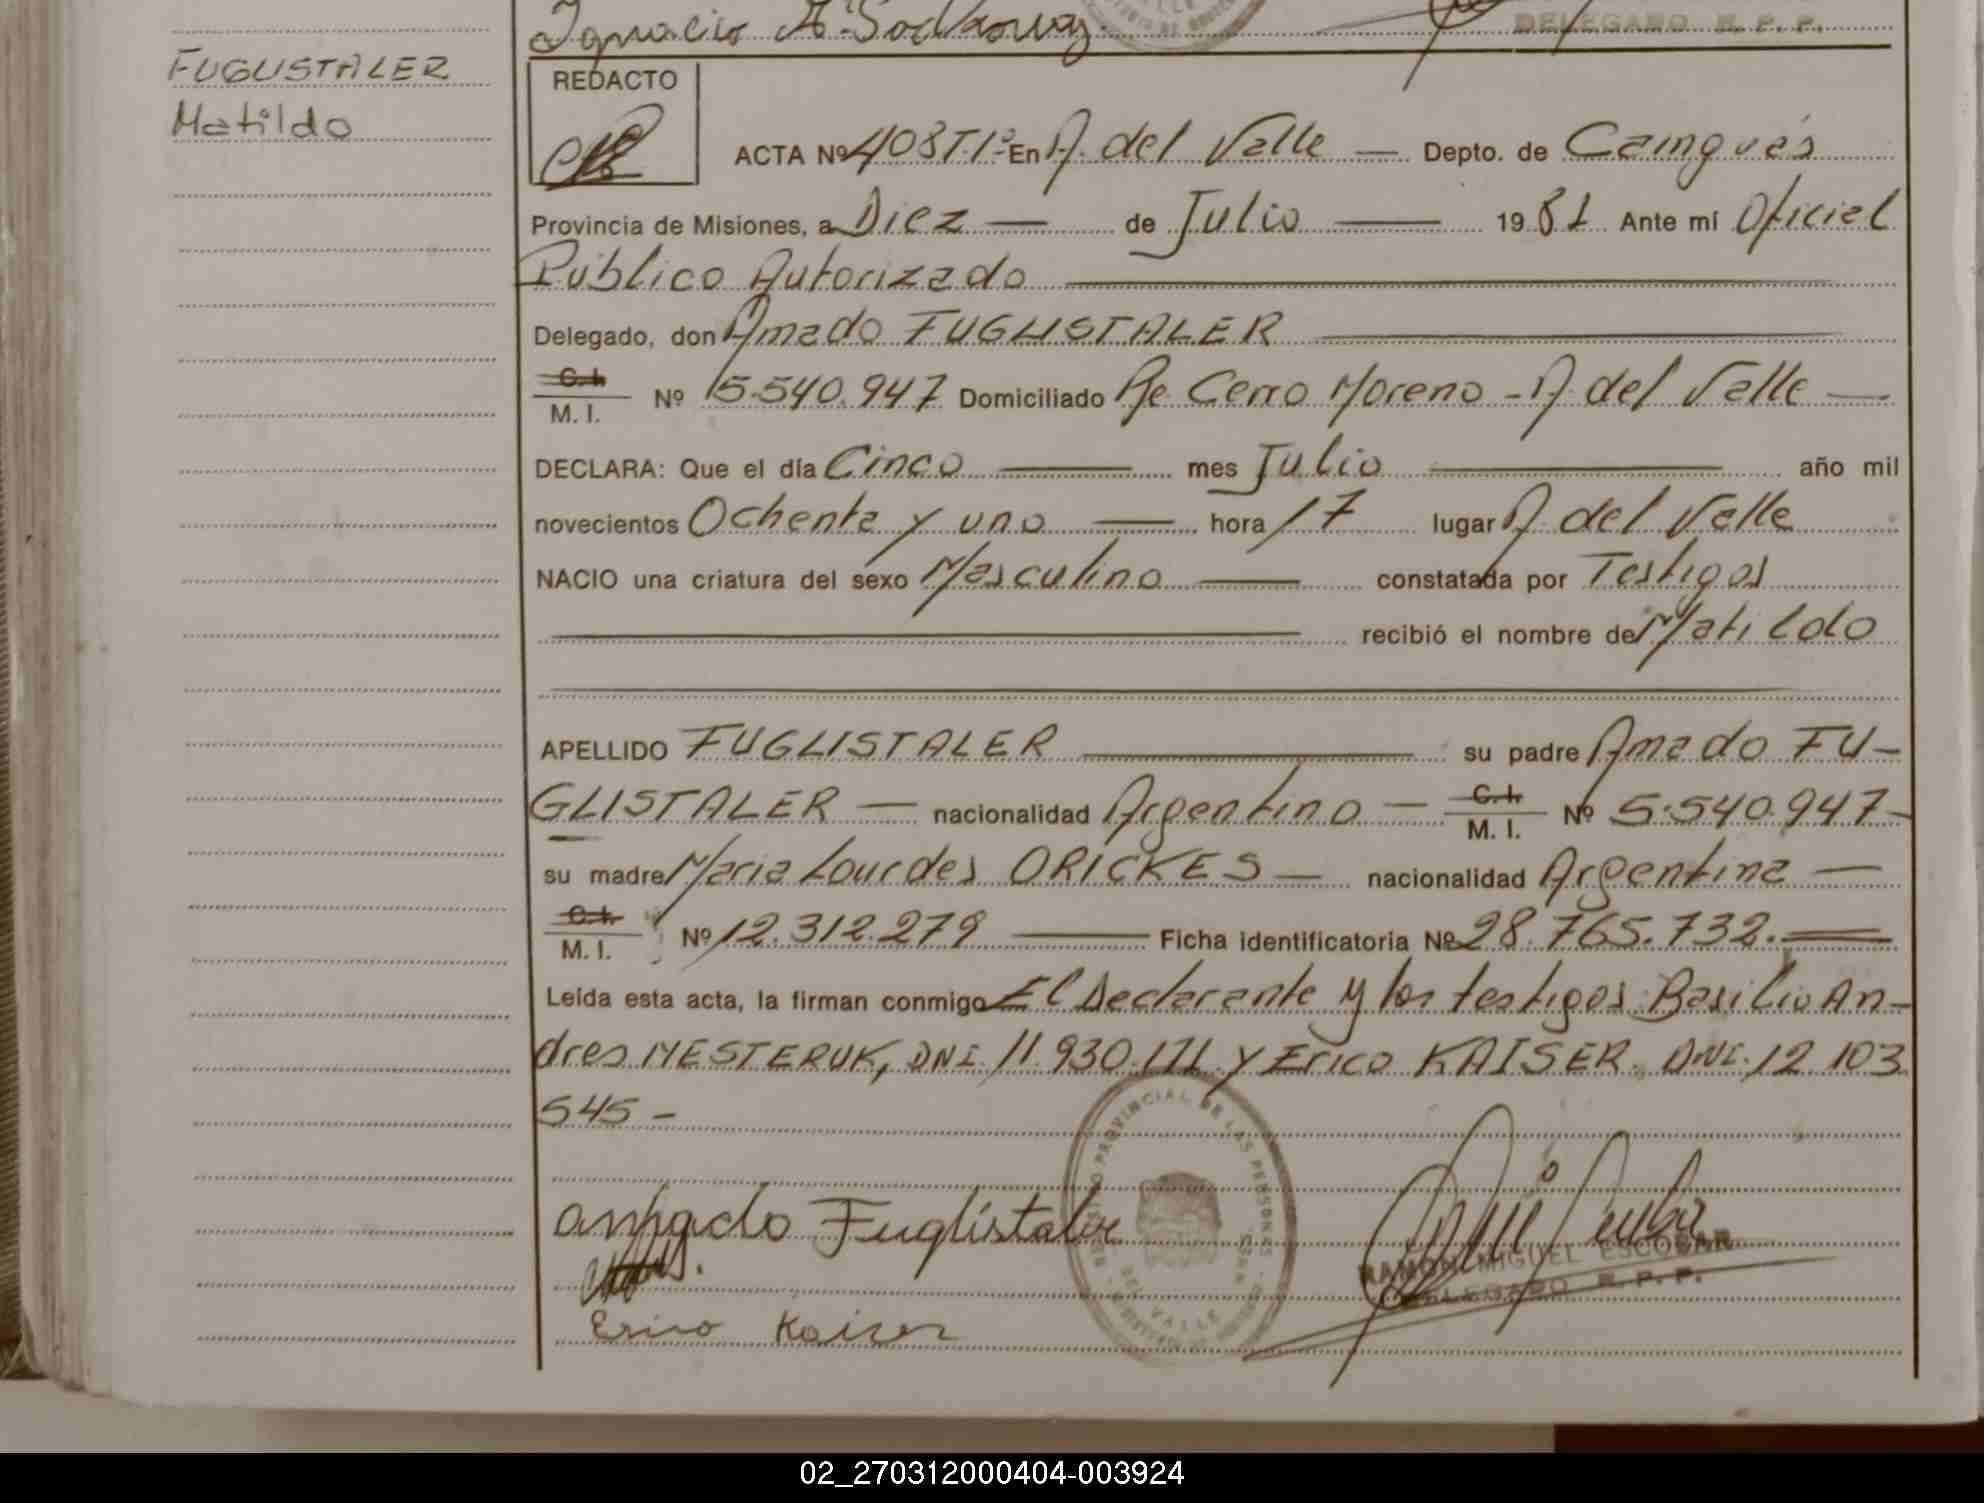 Ignacio
DELEGADO R. P. P.
FUGLISTALER
Matildo
REDACTO
ACTA Nº 408T.1º En A. del Valle — Depto. de Cainguás
Provincia de Misiones, a Diez — de Julio — 1981 Ante mí Oficial
Público Autorizado
Delegado, don Amado FUGLISTALER
C.I. M. I. Nº 5.540.947 Domiciliado Pje Cerro Moreno - A. del Valle —
DECLARA: Que el día Cinco — mes Julio — año mil
novecientos Ochenta y uno — hora 17 lugar A. del Valle
NACIO una criatura del sexo Masculino — constatada por Testigos
recibió el nombre de Matildo
APELLIDO FUGLISTALER — su padre Amado FU-
GLISTALER — nacionalidad Argentino — C.I. M. I. Nº 5.540.947-
su madre Maria Lourdes ORICKES — nacionalidad Argentina —
C.I. M. I. Nº 12.312.279 — Ficha identificatoria Nº 28.765.732.
Leída esta acta, la firman conmigo El Declarante y los testigos: Basilio An-
dres MESTERUK, DNI. 11.930.171 y Erico KAISER. DNI. 12.103
545 -
REGISTRO PROVINCIAL DE LAS PERSONAS
DEL VALLE
amado Fuglistaler
RAMON MIGUEL ESCOBAR
DELEGADO R. P. P.
Erico Kaiser
02_270312000404-003924